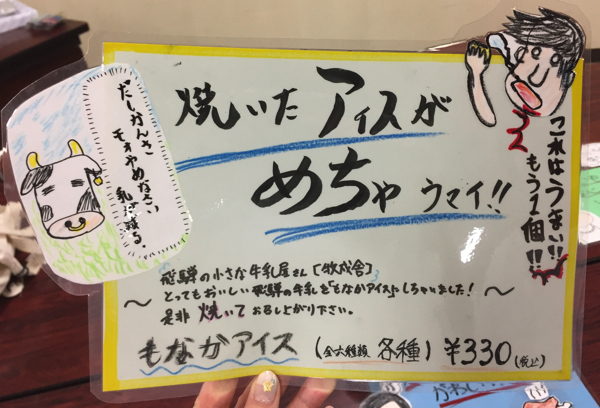 焼いたアイスが
めちゃウマイ!!
これはうまい!!
もう1個!!
飛騨の小さな牛乳屋さん「牧成舎」
とってもおいしい飛騨の牛乳を「もなかアイス」にしちゃいました!
是非焼いてお召し上がり下さい。
もなかアイス(全六種類 各種)¥330(税込)